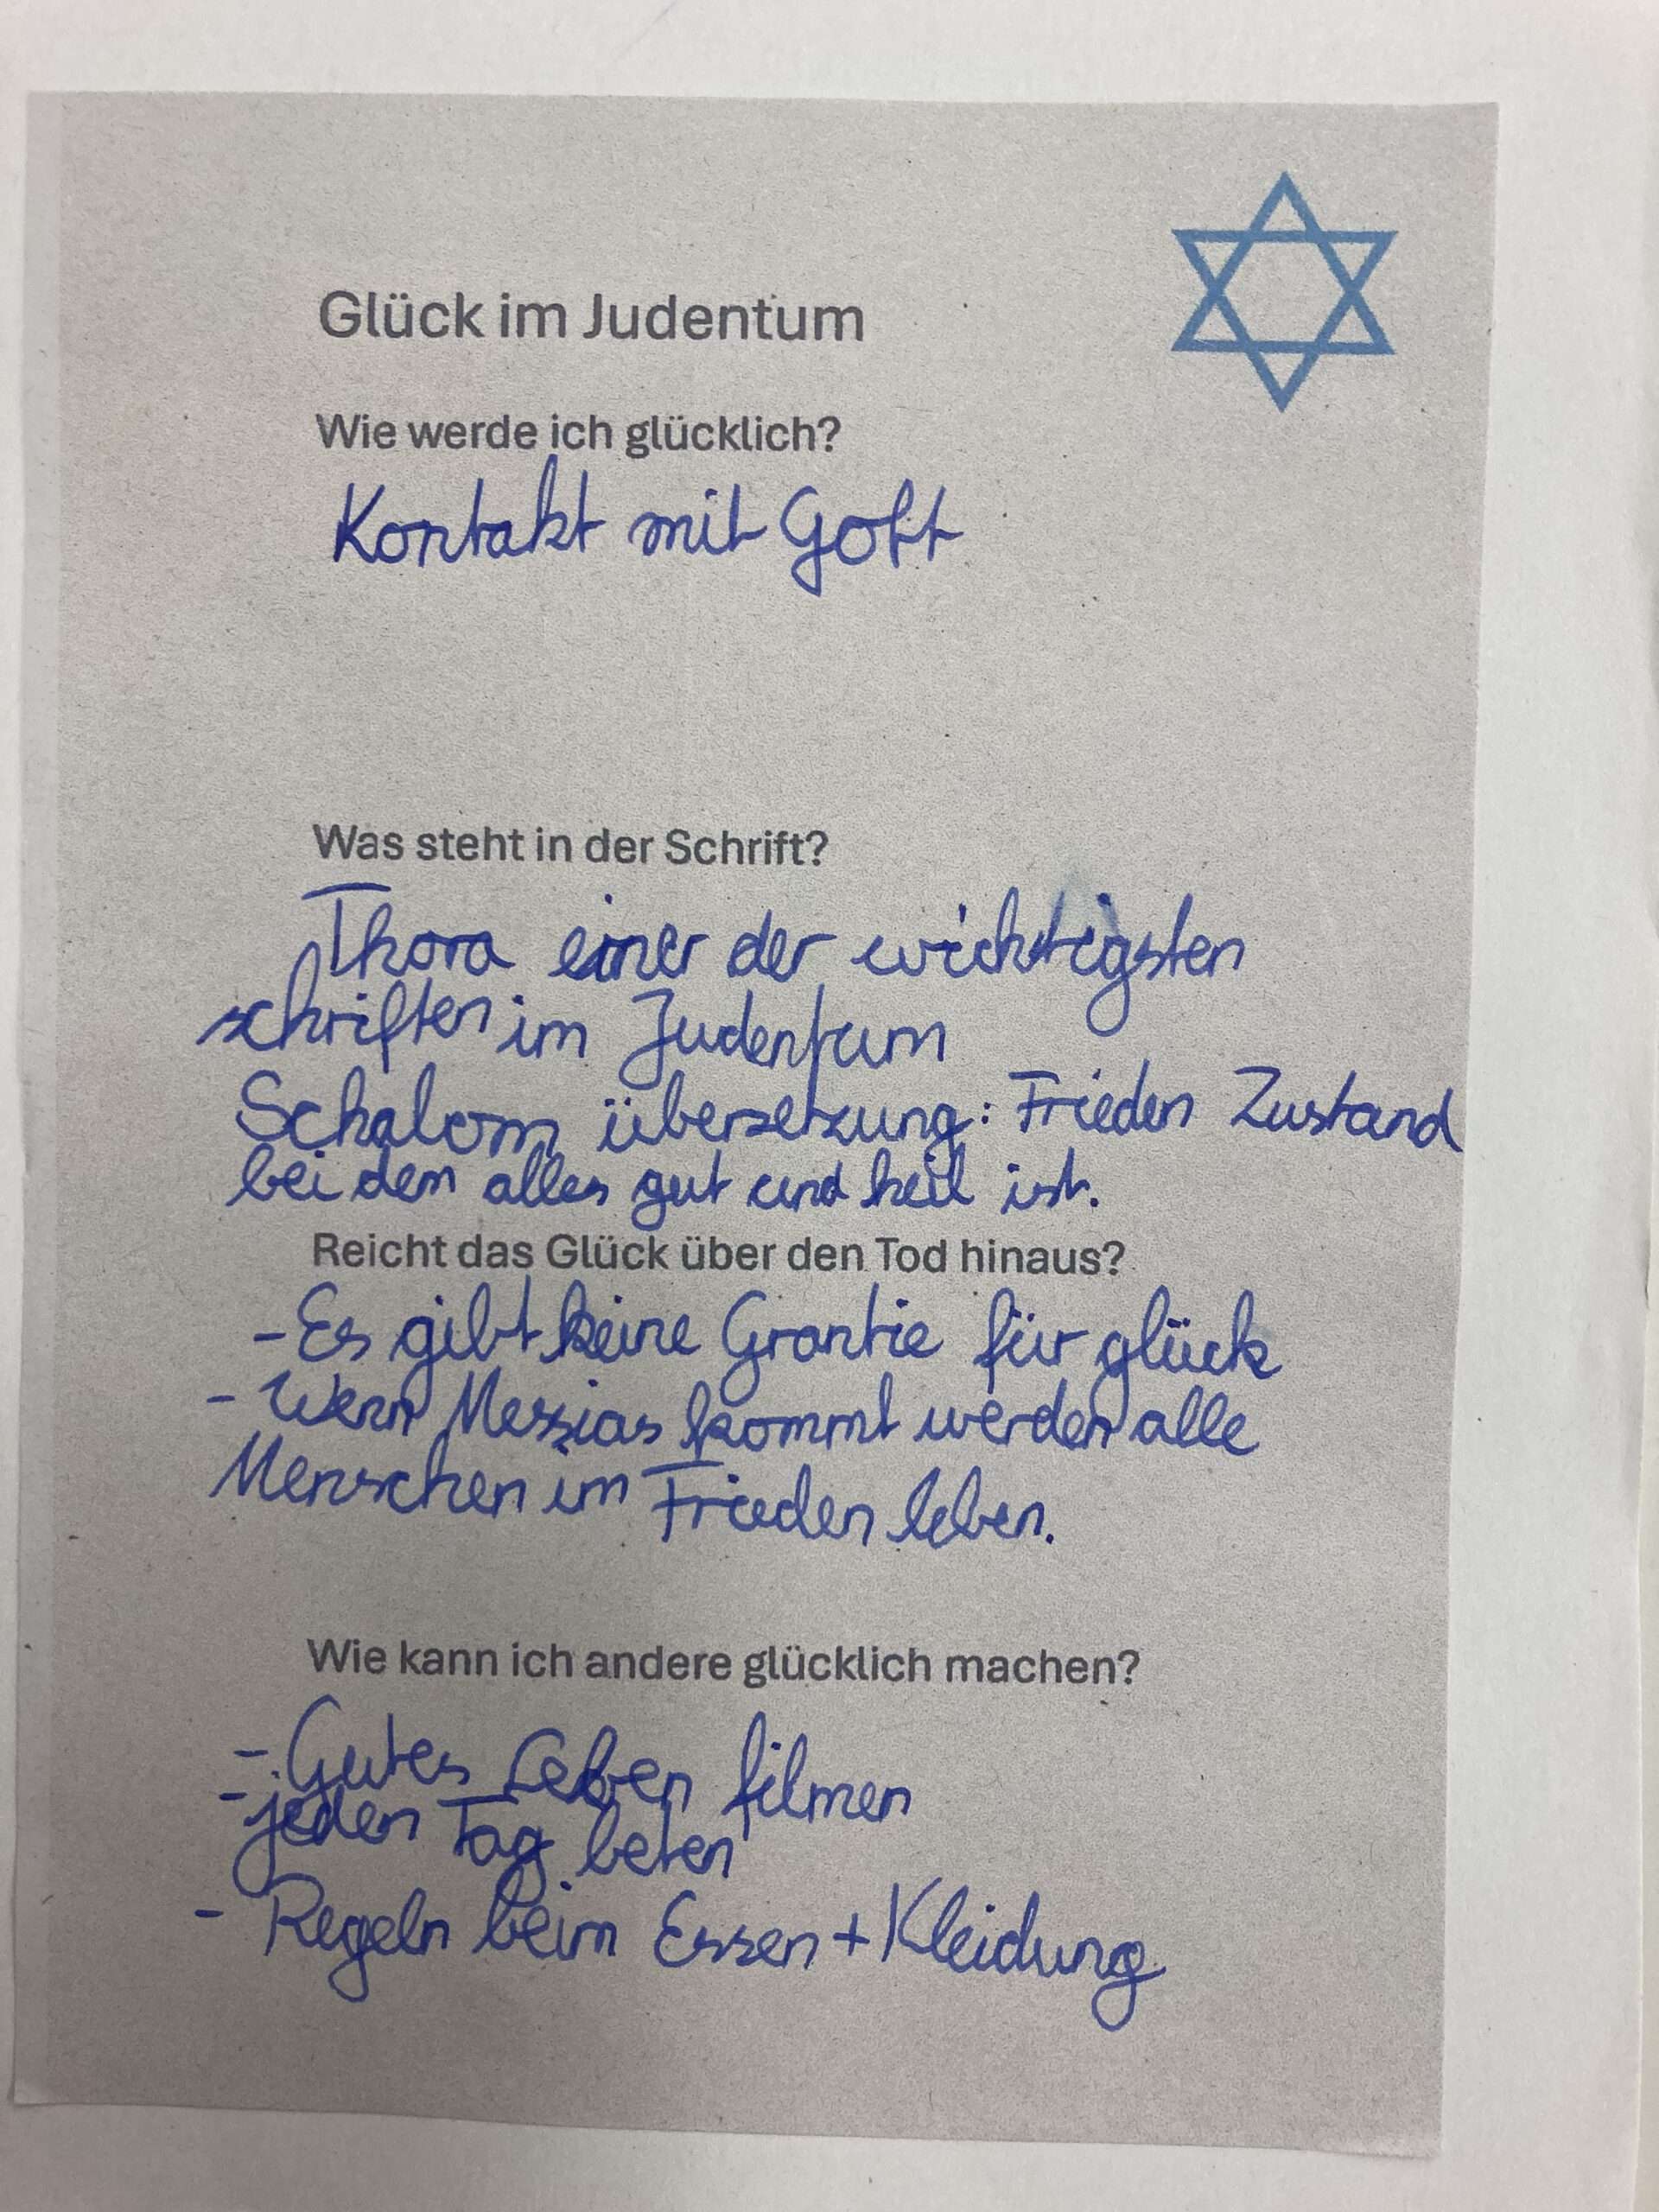 Glück im Judentum
Wie werde ich glücklich?
Kontakt mit Gott
Was steht in der Schrift?
Thora einer der wichtigsten
schriften im Judentum
Schalom übersetzung: Frieden Zustand
bei dem alles gut und heil ist.
Reicht das Glück über den Tod hinaus?
- Es gibt keine Grantie für glück
- Wenn Messias kommt werden alle
Menschen im Frieden leben.
Wie kann ich andere glücklich machen?
- Gutes Leben filmen
- jeden Tag beten
- Regeln beim Essen + Kleidung